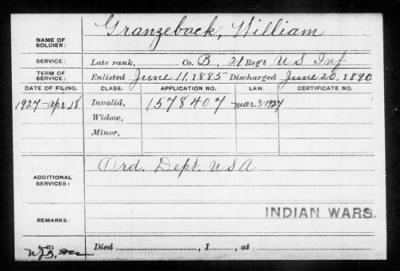 NAME OF SOLDIER: Granzeback, William
SERVICE: Late rank, Co. B, 21 Reg't U S Inf
TERM OF SERVICE: Enlisted June 11, 1885 Discharged June 20, 1890
DATE OF FILING. CLASS. APPLICATION NO. LAW. CERTIFICATE NO.
1927-Apr. 18 Invalid, 1578407 Mar. 3-1927
Widow,
Minor,
ADDITIONAL SERVICES: Ord. Dept. U S A
REMARKS: INDIAN WARS.
Died , 1 , at